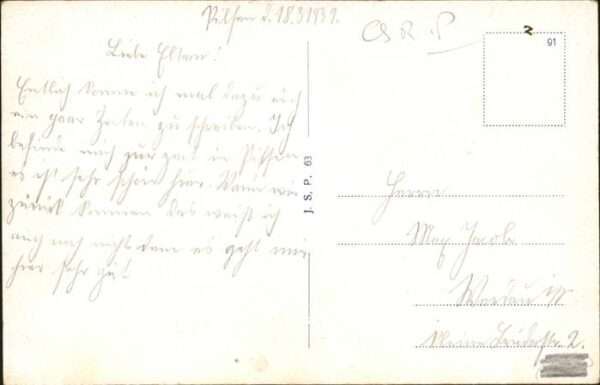 Pilsen d. 18.3.1939.
Liebe Eltern!
Entlich komme ich mal dazu euch
ein paar Zeilen zu schreiben. Ich
befinde mich zur zeit in Pilsen
es ist sehr schön hier. Wann wir
zurück kommen das weiß ich
auch noch nicht denn es geht mir
hier sehr gut!
J. S. P. 63
91
Herrn
Max Jacob
Werdau i/S.
Kleine Brüderstr. 2.